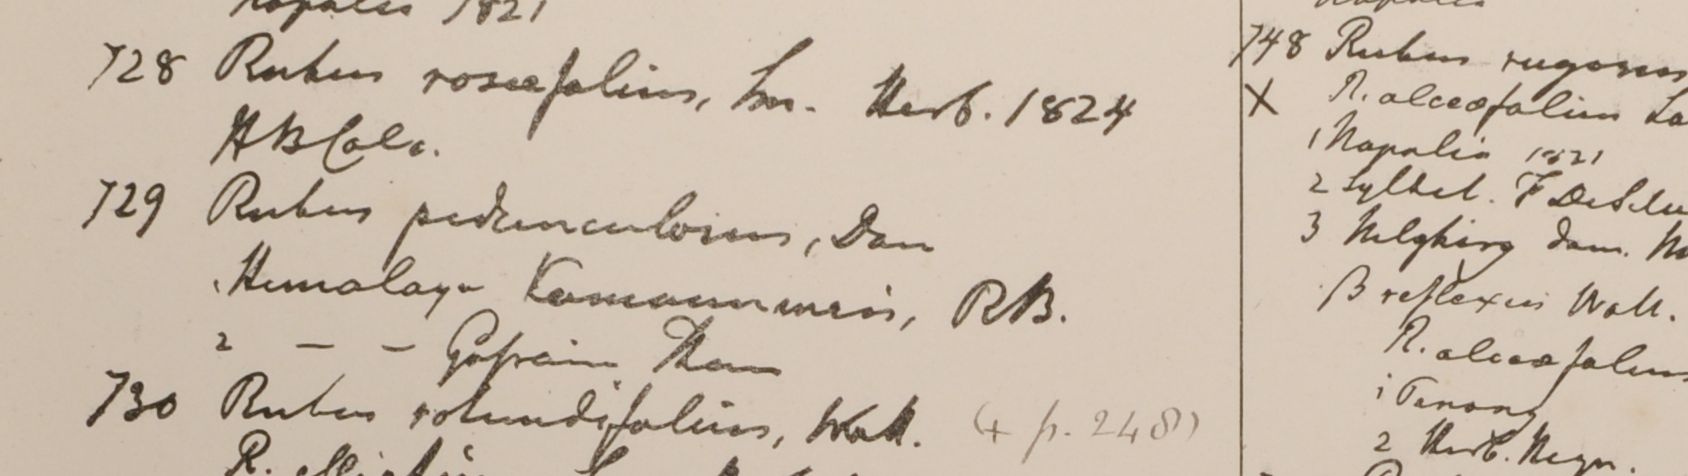 Napalia 1821
728 Rubus rosæfolius, Sm. Herb. 1824
HBCalc.
729 Rubus pedunculosus, Don
Himalaya Kamaunensis, RB.
2 — — Gosain Than
730 Rubus rotundifolius, Wall. (+ p. 248)
R.
Napalia
748 Rubus rugosus
X R. alceæfolius
1 Napalia 1821
2 Sylhet. F De
3 Nilghiry dom.
β reflexus Wall.
R. alceæfolius
1 Penang
2 Herb. Heyn.